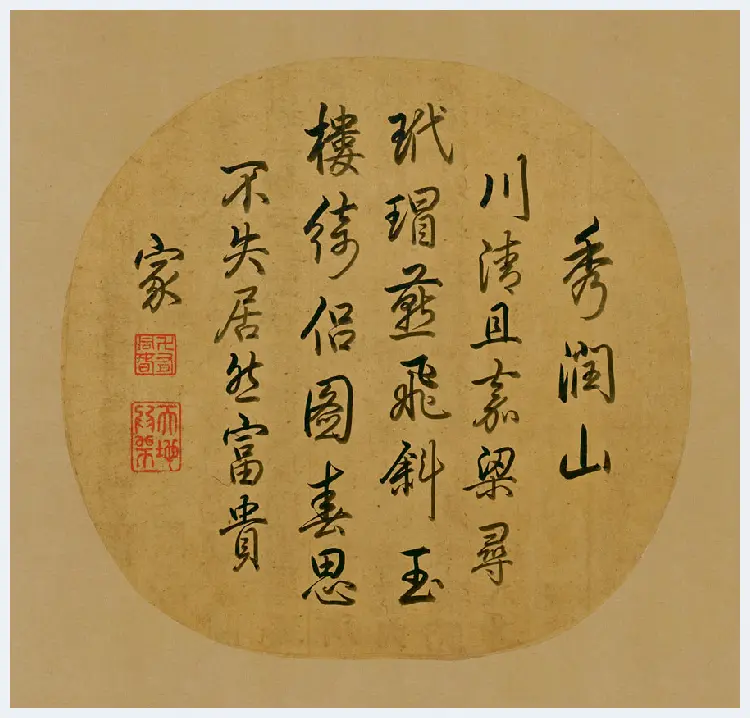 秀潤山
川清且嘉梁尋
玳瑁燕飛斜玉
樓待侶圖春思
不失居然富貴
家